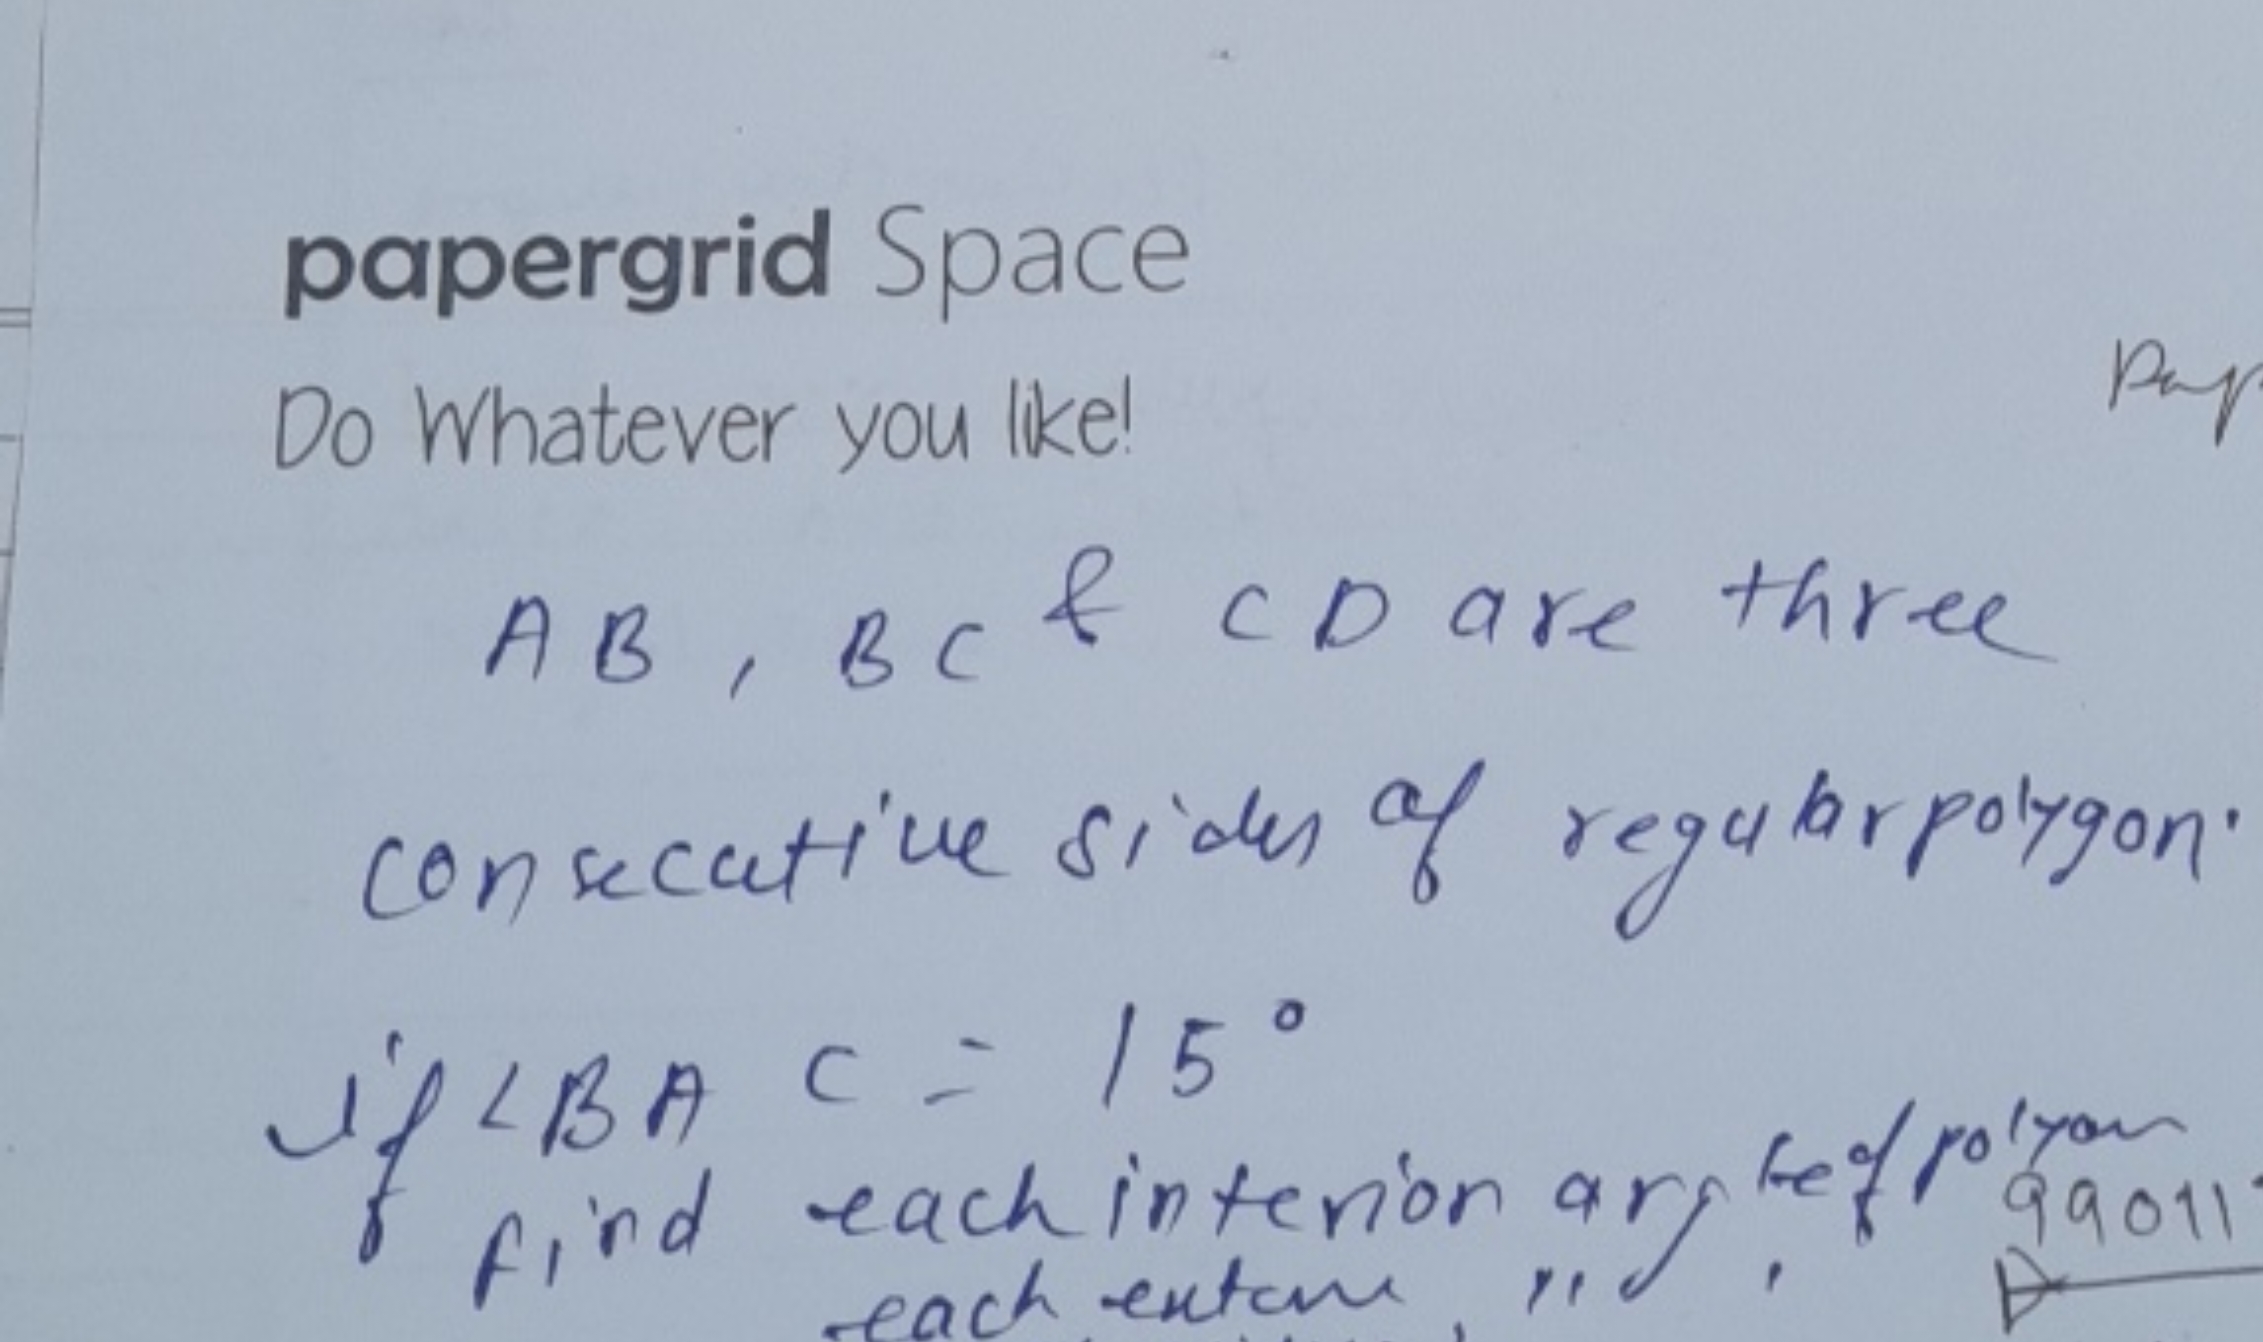 papergrid Space
Do Whatever you like!
Pap
AB, BC & CD are three
consecutive sides of regular polygon.
if <BAC = 15°
find each interior angle of polyon
99011
each extern " " "